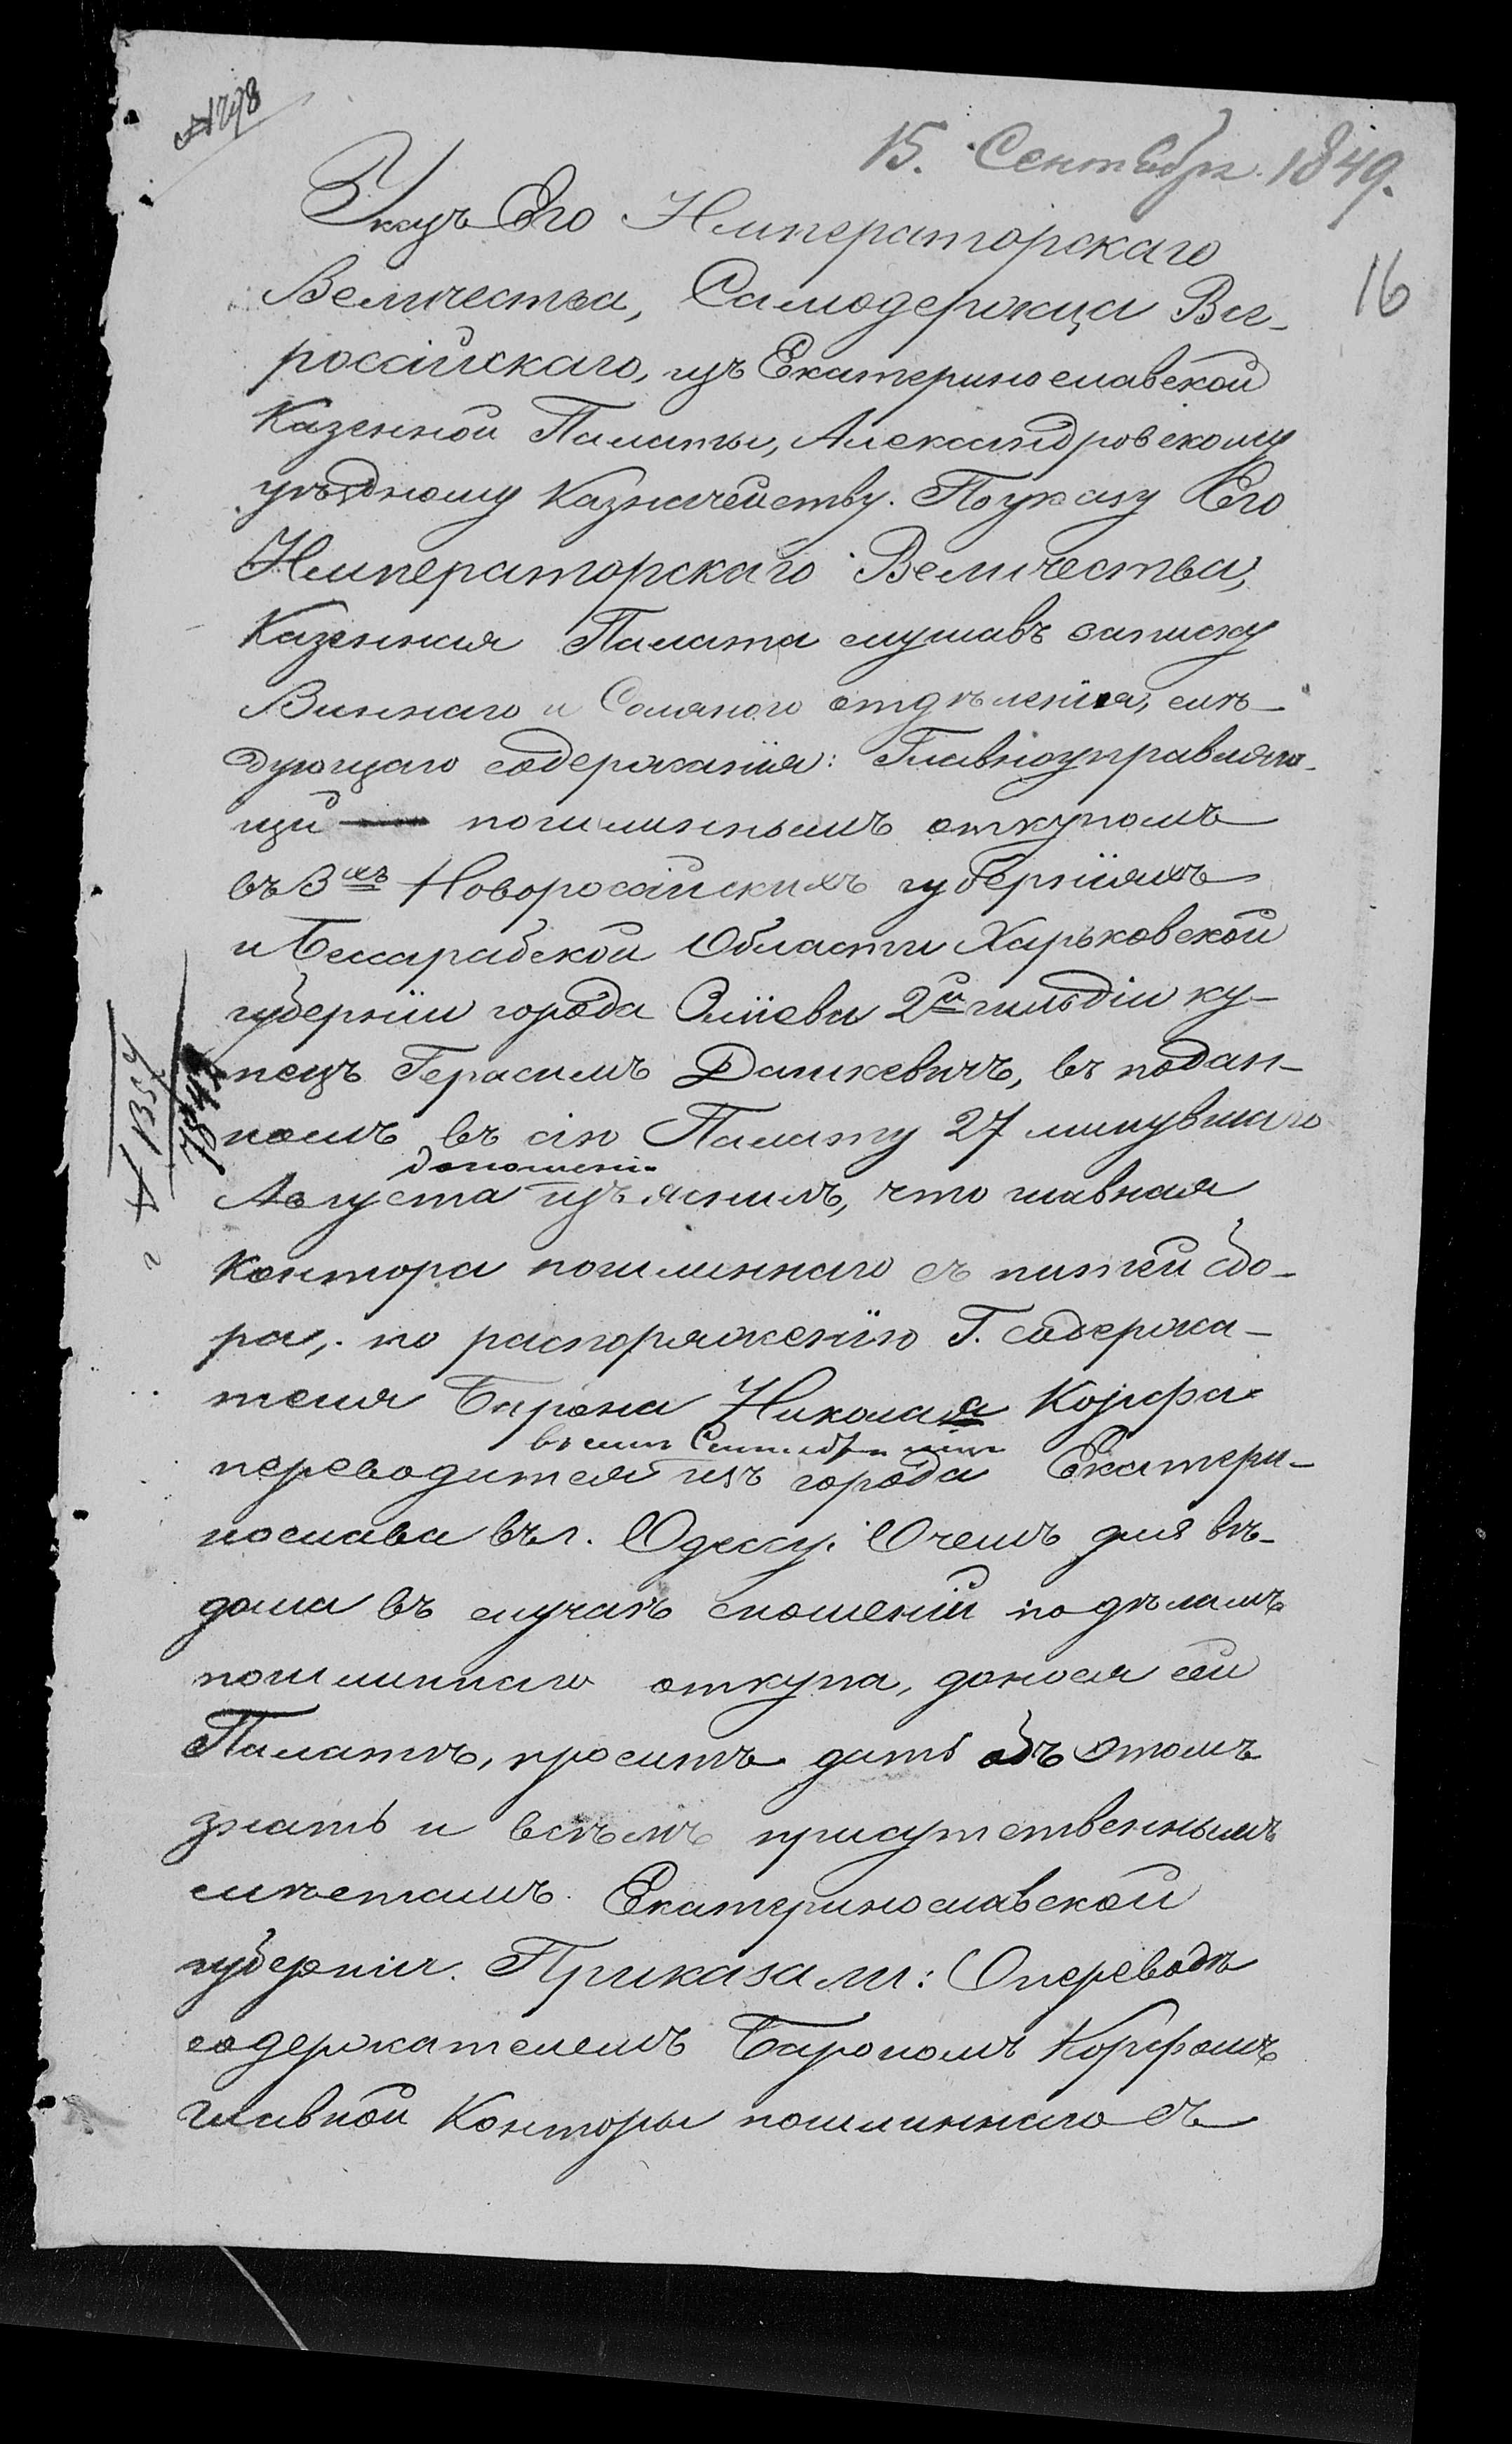 15. Сентября 1849.
16
Указъ Его Императорскаго
Величества, Самодержца Все-
россійскаго, изъ Екатеринославской
Казенной Палаты, Александровскому
уѣздному Казначейству. По указу Его
Императорскаго Величества,
Казенная Палата слушавъ записку
Виннаго и Солянаго отдѣленія, слѣ-
дующаго содержанія: Главноуправляю-
щій пошлиннымъ откупомъ
въ 3хъ Новоросійскихъ губерніяхъ
и Бессарабской Области Харьковской
губерніи города Зміева 2й гильдіи ку-
пецъ Герасимъ Дашкевичъ, въ подан-
номъ въ сію Палату 27 минувшаго
Августа изъяснилъ, что главная
Контора пошлиннаго съ питей сбо-
ра, по распоряженію Г. содержа-
теля Барона Николая Корфа
въ семъ Сентябрѣ
переводится изъ города Екатери-
нослава въ г. Одессу. О чемъ для вѣ-
дома въ случаѣ сношеній по дѣламъ
пошлиннаго откупа, донося сей
Палатѣ, проситъ дать объ этомъ
знать и всѣмъ присутственнымъ
мѣстамъ Екатеринославской
губерніи. Приказали: О переводѣ
содержателемъ Барономъ Корфомъ
главной Конторы пошлиннаго съ